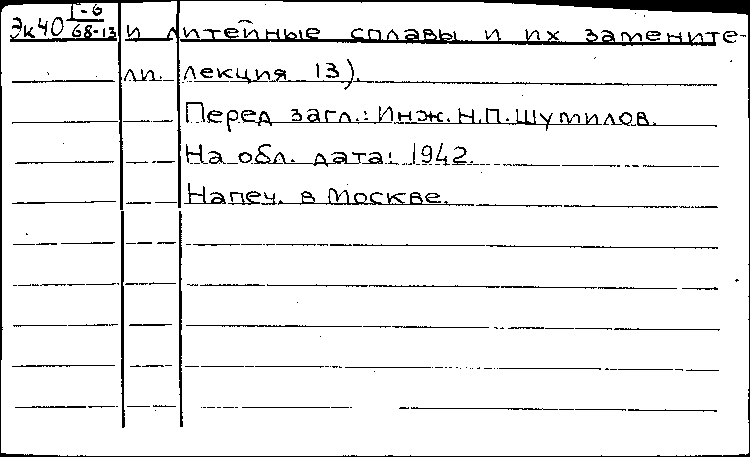 Эк40 Г-6/68-13 и литейные сплавы и их замените-
ли. лекция 13).
Перед загл.: Инж. Н.П. Шумилов.
На обл. дата: 1942.
Напеч. в Москве.